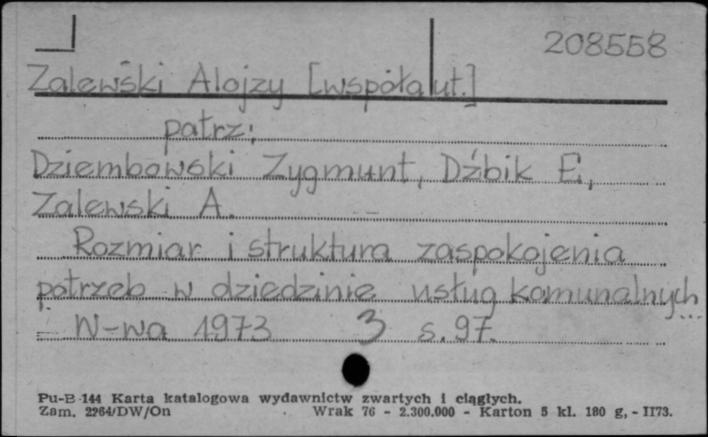 208558
Zalewski Alojzy [współaut.]
patrz:
Dziembowski Zygmunt, Dźbik E.,
Zalewski A.
Rozmiar i struktura zaspokojenia
potrzeb w dziedzinie usług komunalnych...
W-wa 1973 3 s. 97.
Pu-B-144 Karta katalogowa wydawnictw zwartych i ciągłych.
Zam. 2264/DW/On Wrak 76 - 2.300.000 - Karton 5 kl. 180 g, - II73.